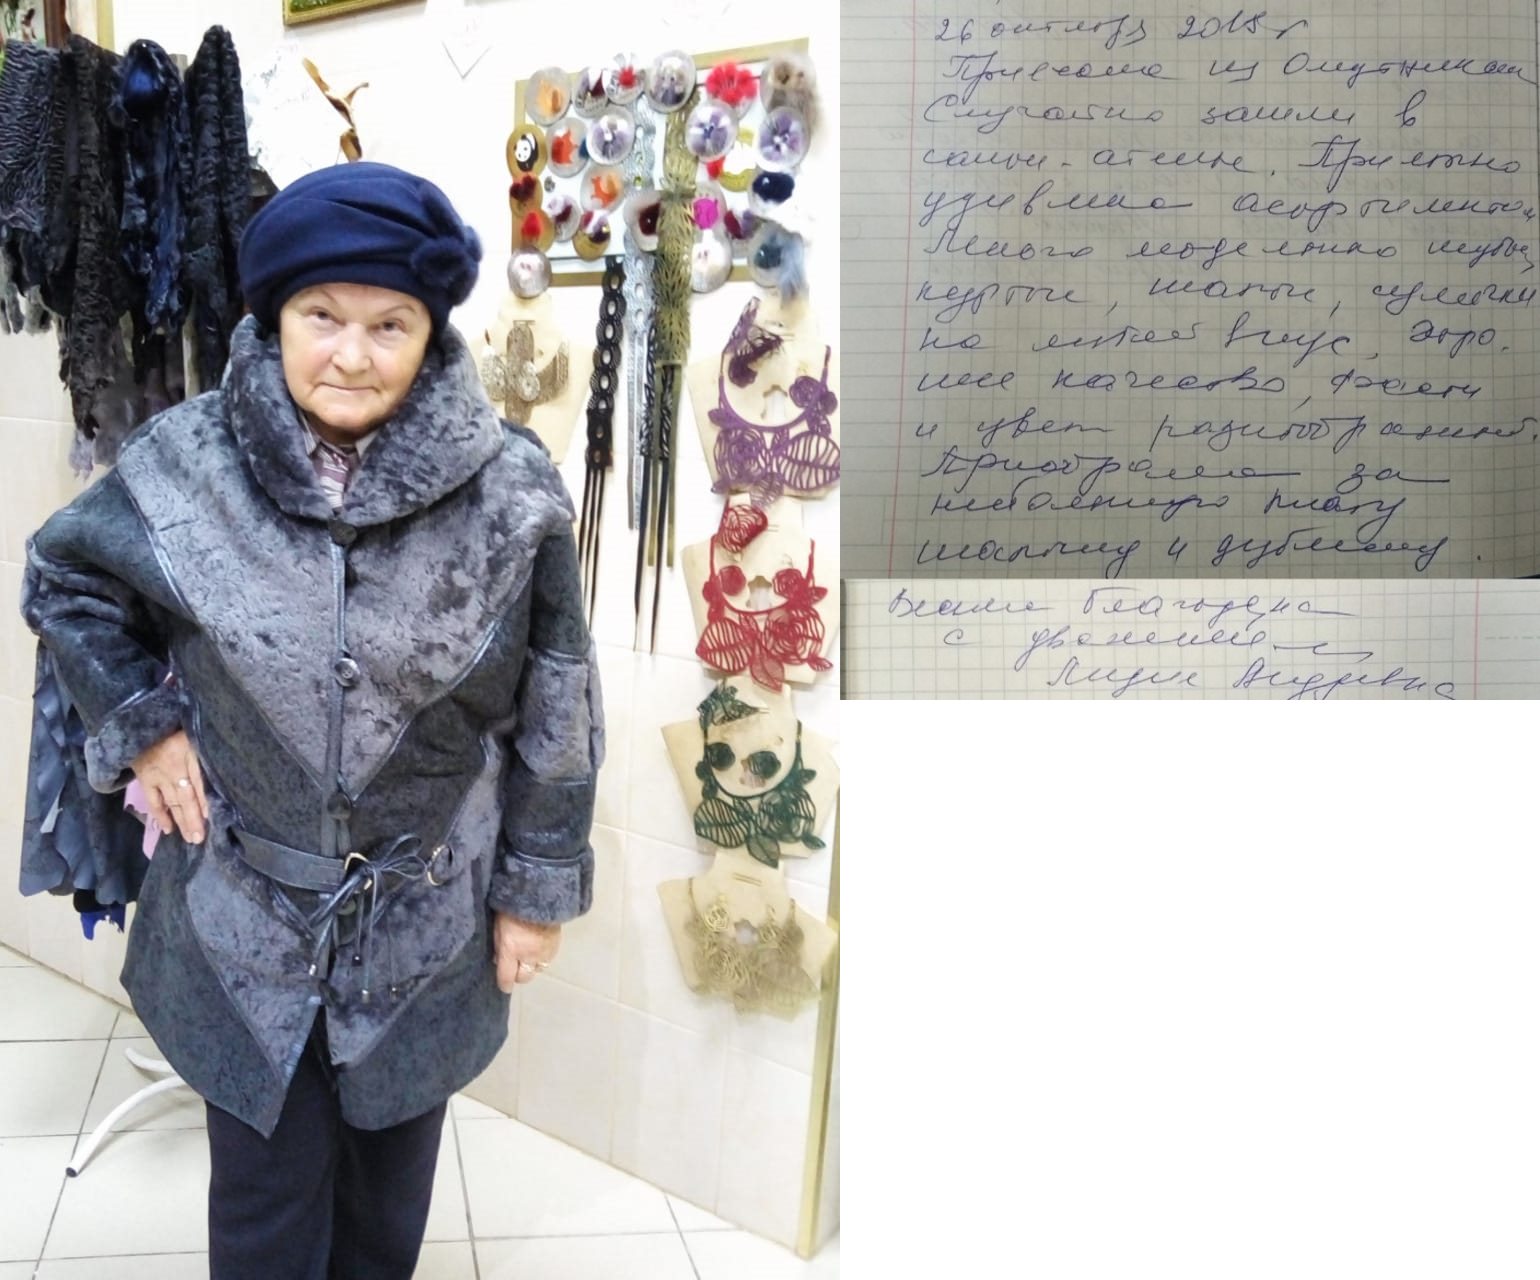 26 октября 2015 г
Приехала из Омутнинска
Случайно зашли в
салон-ателье. Приятно
удивлена асортиментом
Много модельно шубы,
куртки, шапки, сумочки
на любой вкус. Хоро-
шее качество, фасон
и цвет разнообразный
Приобрела за
небольшую плату
шапочку и дубленку.
Вами благодарна
с уважением
Лидия Андреевна